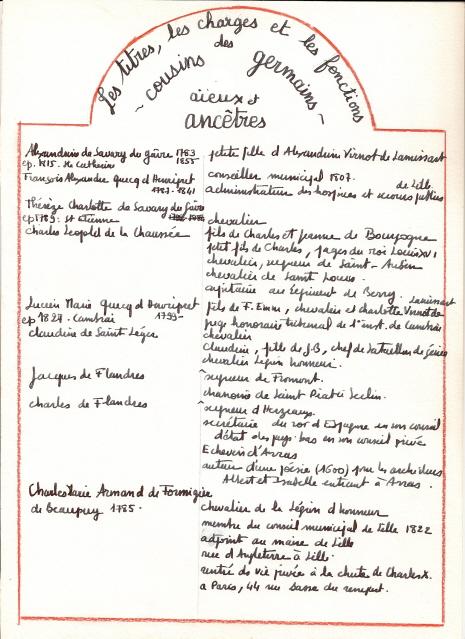 Les titres, les charges et les fonctions
des
~ cousins germains ~
aïeux et
ancêtres
Alexandrine de Savary du Gâvre 1783
1855
ep. 1815. Ste Catherine
François Alexandre Quecq d'Henripret
1787-1841
petite fille d'Alexandrine Virnot de Lamissart
conseiller municipal 1807.
administrateur des hospices et secours publics
de Lille.
Thérèze Charlotte de Savary du Gâvre
ep 1789. St Etienne
Charles Leopold de la Chaussée
chevalier
fils de Charles et Jeanne de Bourgogne
petit fils de Charles, pages du roi Louis XVI
chevalier, seigneur de Saint-Aubin
chevalier de Saint Louis.
capitaine au Régiment de Berry.
Lucien Marie Quecq d'Henripret
1795-
ep 1827 - Cambrai
claudine de Saint Léger
Lamissart
fils de F. Emm, chevalier et charlotte Virnot de
juge honoraire tribunal de 1e inst. de Cambrai
chevalier
claudine, fille de J.B, chef de bataillon de génie
chevalier Légion honneur.
Jacques de Flandres
seigneur de Fromont.
chanoine de Saint Piat à Seclin.
charles de Flandres
seigneur d'Herzeaux.
secrétaire du roi d'Espagne en son conseil
d'état des pays bas en son conseil privé
Echevin d'Arras
auteur d'une poésie (1600) pour les archiducs
Albert et Isabelle entrant à Arras.
Charles Marie Armand de Formigier
de Beaupuy 1785.
chevalier de la Légion d'honneur
membre du conseil municipal de Lille 1822
adjoint au maire de Lille
rue d'Angleterre à Lille.
rentré ds vie privée à la chute de Charles X.
a Paris, 44 rue basse du rempart.